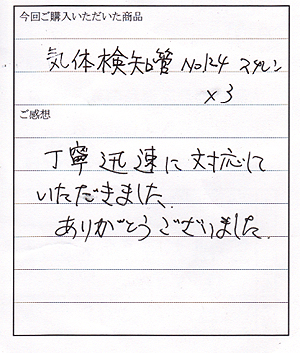 今回ご購入いただいた商品
気体検知管 No124 スチレン
×3
ご感想
丁寧迅速に対応して
いただきました.
ありがとうございました.